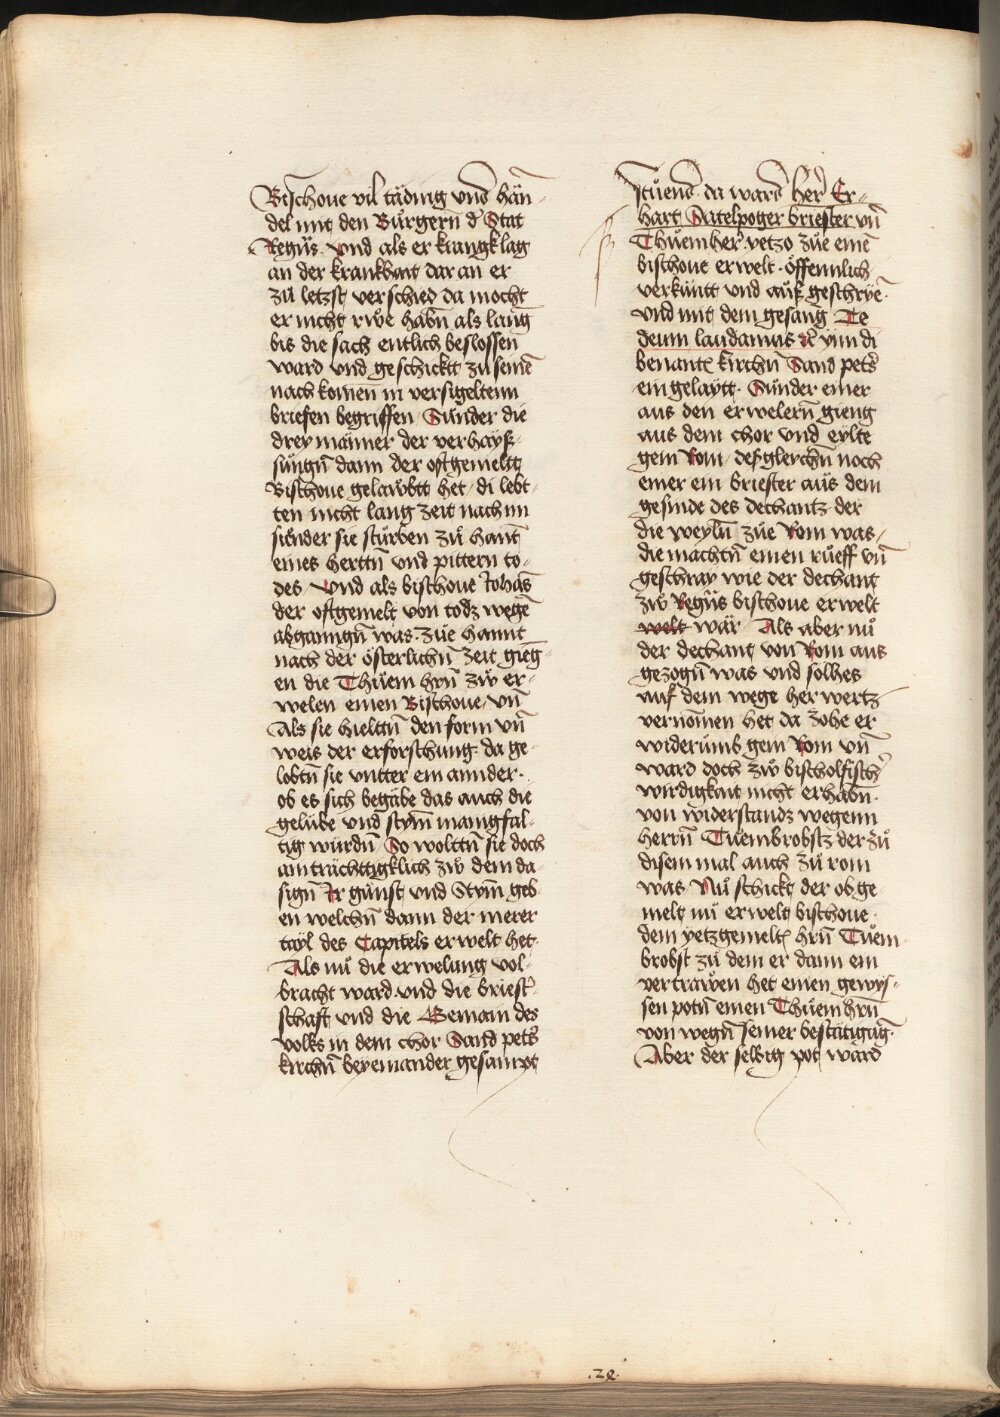 Bischoue vil täding vnd hän-
del mit den Bürgern̄ d' Stat
Regn̄s. vnd als er krangklag
an der krankhait dar an er
zů letzst verschied da mocht
er nicht rwe habn̄ als lang
bis die sach entlich beslossen
ward vnd geschickt zu seinē
nach komen in versigeltenn
briefen begriffen Sünder die
drey männer der verhayß-
sungn̄ dann der oftgemeltt
Bischoue gelawbtt het / di lebt-
ten nicht lang zeit nach im
sünder sie stürben zů hant
eines herttn̄ vnd pittern to-
des vnd als bischoue Johās
der oftgemelt von todz wegē
abganngn̄ was. züe hannt
nach der österlichn̄ zeit gieg-
en die Thüem hrn̄ zw er-
welen einen Bischoue / vn̄
Als sie hieltn̄ den form vn̄
weis der erforschung da ge-
lobtn̄ sie vntter ein annder.
ob es sich begäbe das auch die
gelübe vnd stym̄ manigfal-
tig würdn̄ So woltn̄ sie doch
ainträchttigklich zw dem da-
sign̄ Ir günst vnd Stym̄ geb-
en welchn̄ dann der merer
tayl des Capitels erwelt het.
Als nů die erwelung vol-
bracht ward vnd die briest'-
schaft vnd die Gemain des
volks in dem chor Sand pet's
kirchn̄ beyeinander gesampt
Stüend da ward her' Er-
hart Satelpoger briester vn̄
Thüemher' yetzo züe einē
bischoue erwelt. öffennlich
verkünt vnd auß geschryē.
vnd mit dem gesang Te
deum laudamus rc̄ ynn di
benantē kirchn̄ Sand pet's
ein gelaytt. Sünder einer
aus den erwelern̄ gieng
aus dem chor vnd eylte
gem Rom / desgleychn̄ noch
einer ein briester aus dem
gesinde des dechantz der
die weyln̄ züe Rom was /
die machtn̄ einen rüeff vn̄
geschray wie der dechant
zw Regn̄s bischoue erwelt
welt wär Als aber nů
der dechant von Rom aus
gezogn̄ was vnd solhes
auf dem wege her wertz
vernomen het da zohe er
widerümb gem Rom vn̄
ward doch zw bischolfisch'
wirdigkait nicht erhabn̄.
von widerstandz wegenn
herrn̄ Tuembrobstz der zů
disem mal auch zů rom
was Nů schickt der obge-
melt nů erwelt bischoue.
dem yetzgemeltē hrn̄ Tuem
brobst zů dem er dann ein
vertrawen het einen gewis-
sen potn̄ einen Thüemhrn̄
von wegn̄ seiner bestätigūg.
Aber der selbig pot ward